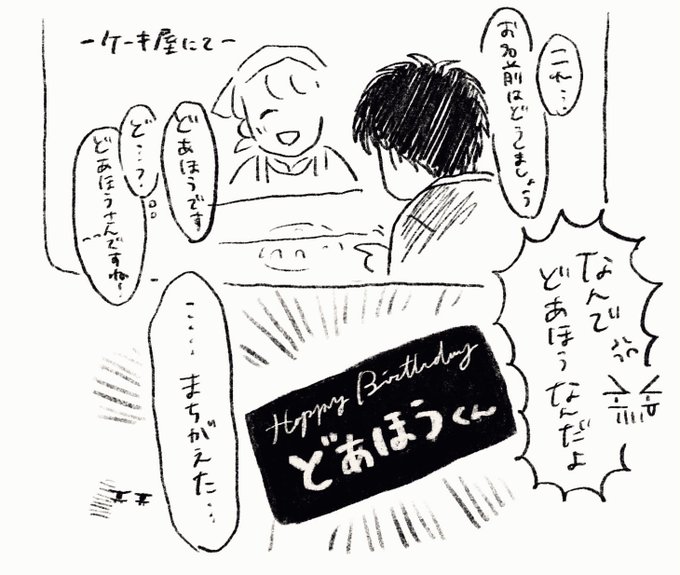 ーケーキ屋にてー
これ…
お名前はどうしましょう
どあほうです
ど…?
どあほうさんですねっ
なんで
どあほうなんだよ
Happy Birthday
どあほうくん
……まちがえた…